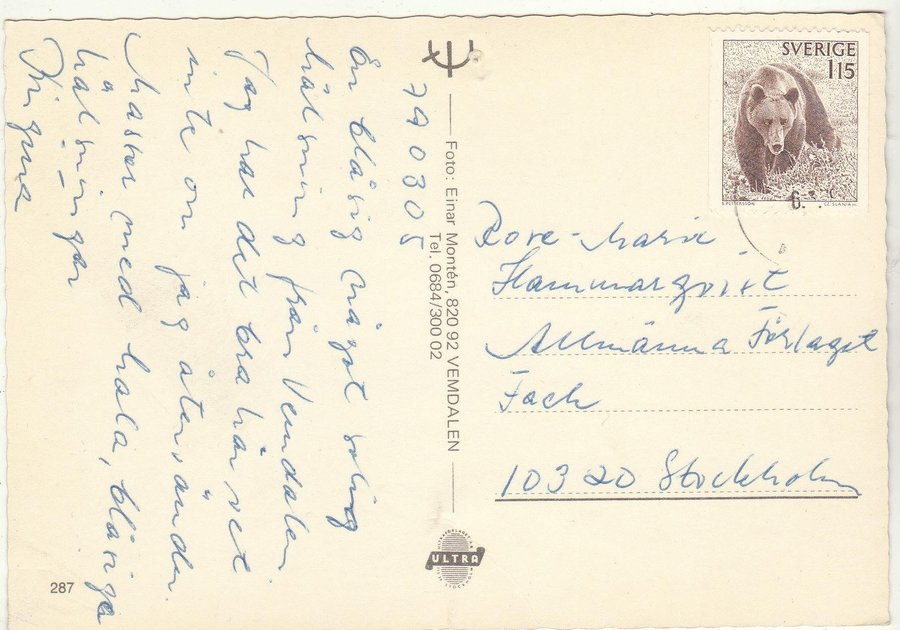 790305
En blåsig något solig
hälsning från Vemdalen.
Jag har det bra här vet
inte om jag återvänder.
Massor med hala, blåsiga
hälsningar
Foto: Einar Montén, 820 92 VEMDALEN
Tel. 0684/300 02
ULTRA
287
SVERIGE
1 15
6.
Rose-Marie
Hammarqvist
Allmänna Förlaget
Fack
10320 Stockholm